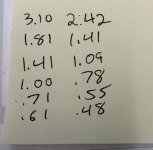 3.10 2.42
1.81 1.41
1.41 1.09
1.00 .78
.71 .55
.61 .48